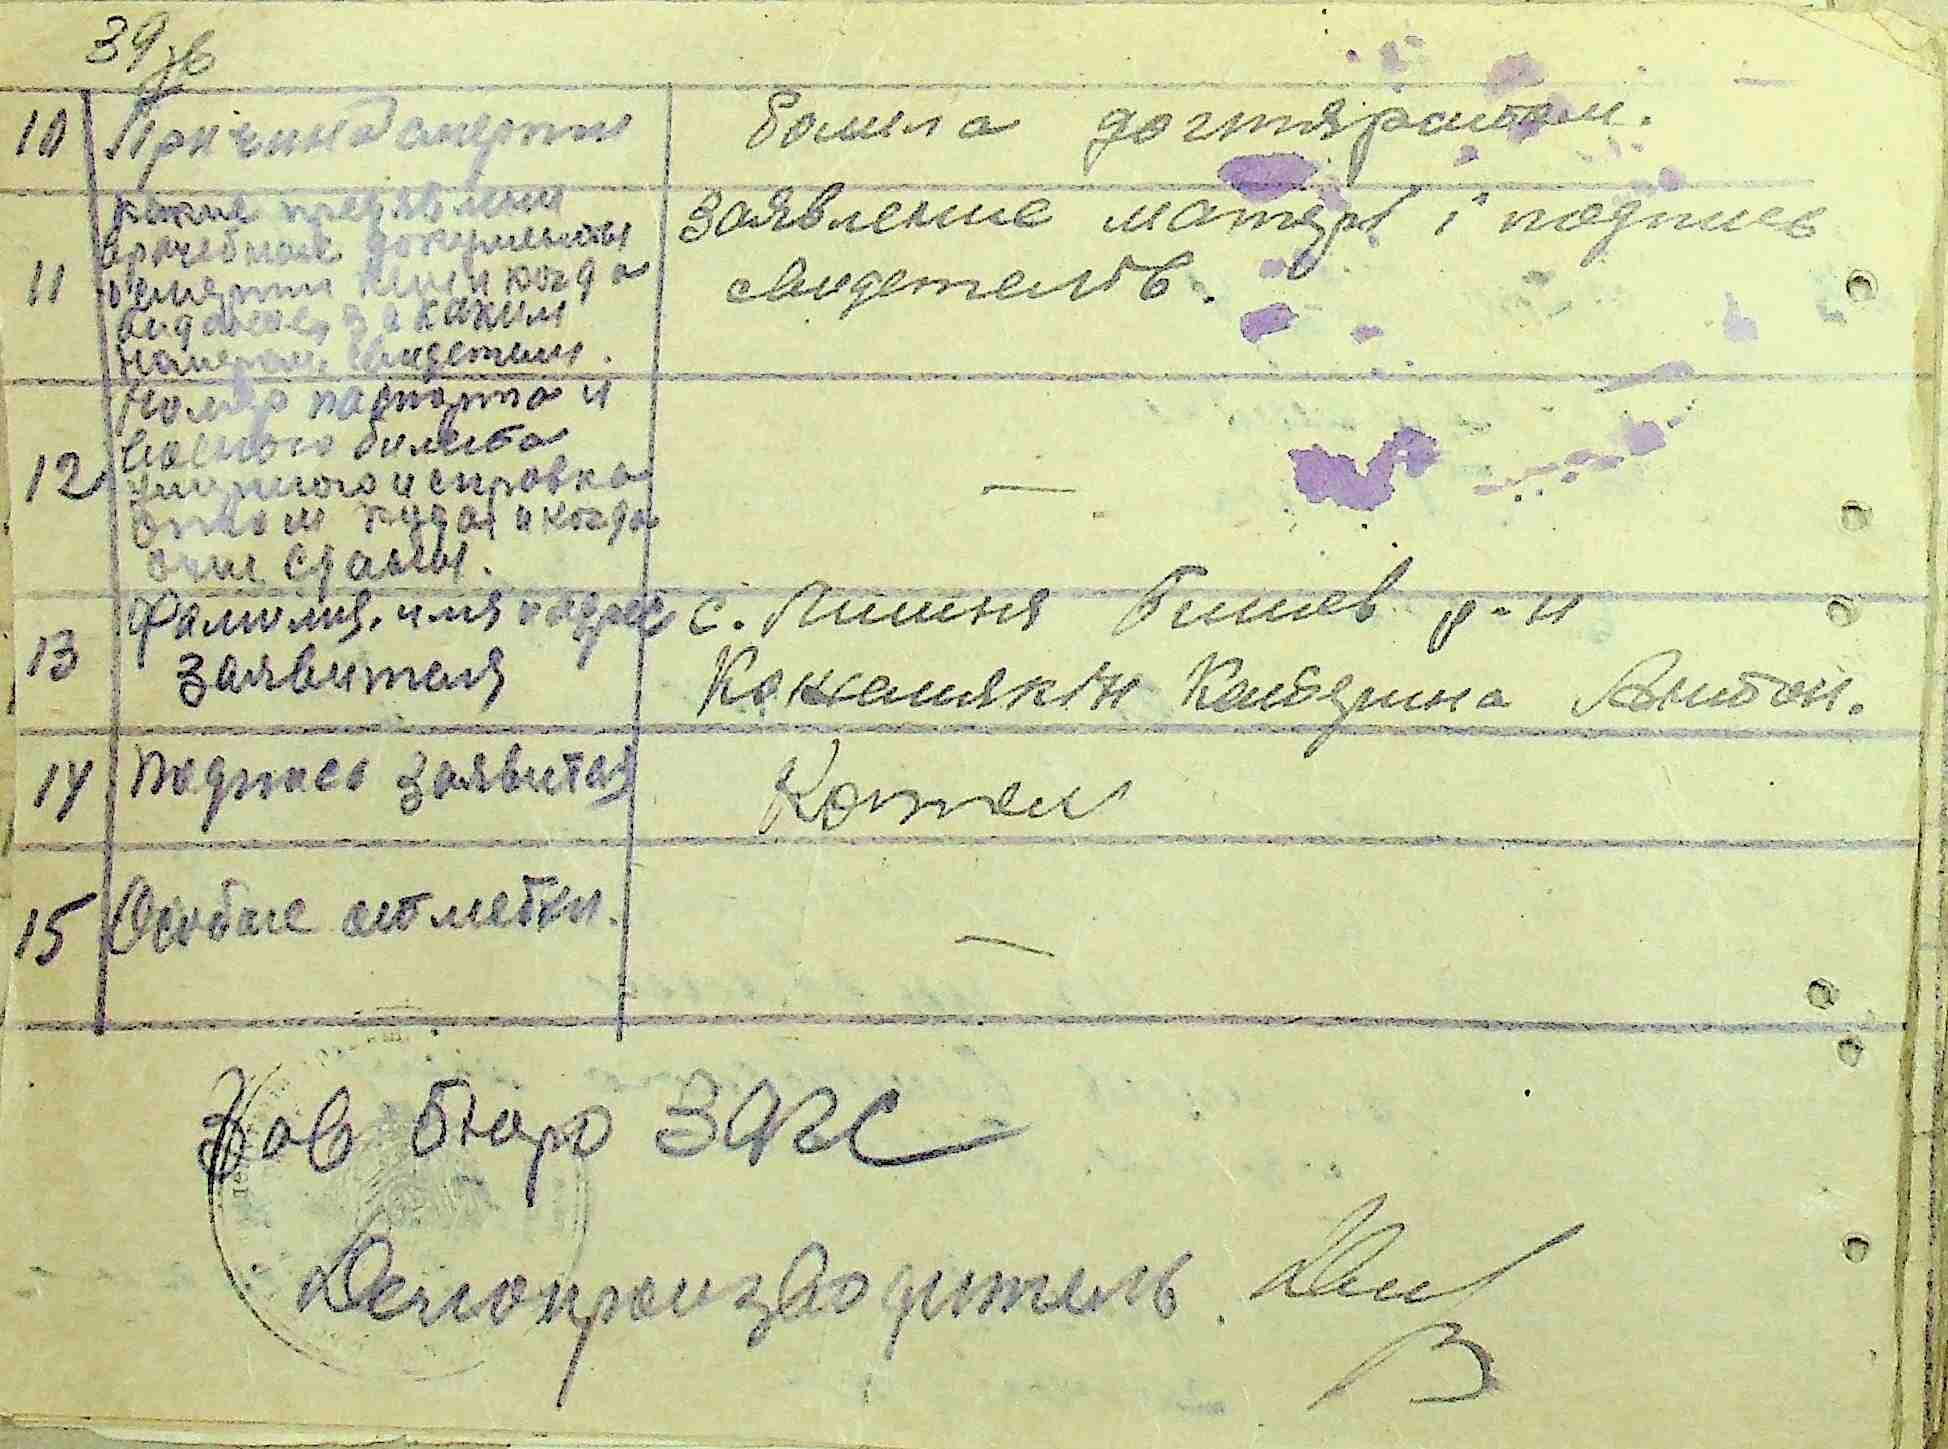 39 зв
10 Причина смерти
болела догтяритом.
11 какие предявлени
врачебные документы
о смерти кем и когда
видание, за каким
номером, свидетели.
заявление матері і подпись
свидетелів.
12 Номер паспорта и
военого билета
умершого и справка
о том куда и когда
они сданы.
—
13 Фамилия, имя и адрес
заявителя
с. Лишня Бишев р-н
Кожемякін Катерина Антон.
14 Подпись заявителя
15 Особые отметки.
—
Зав бюро ЗАГС
Делопроизводитель.